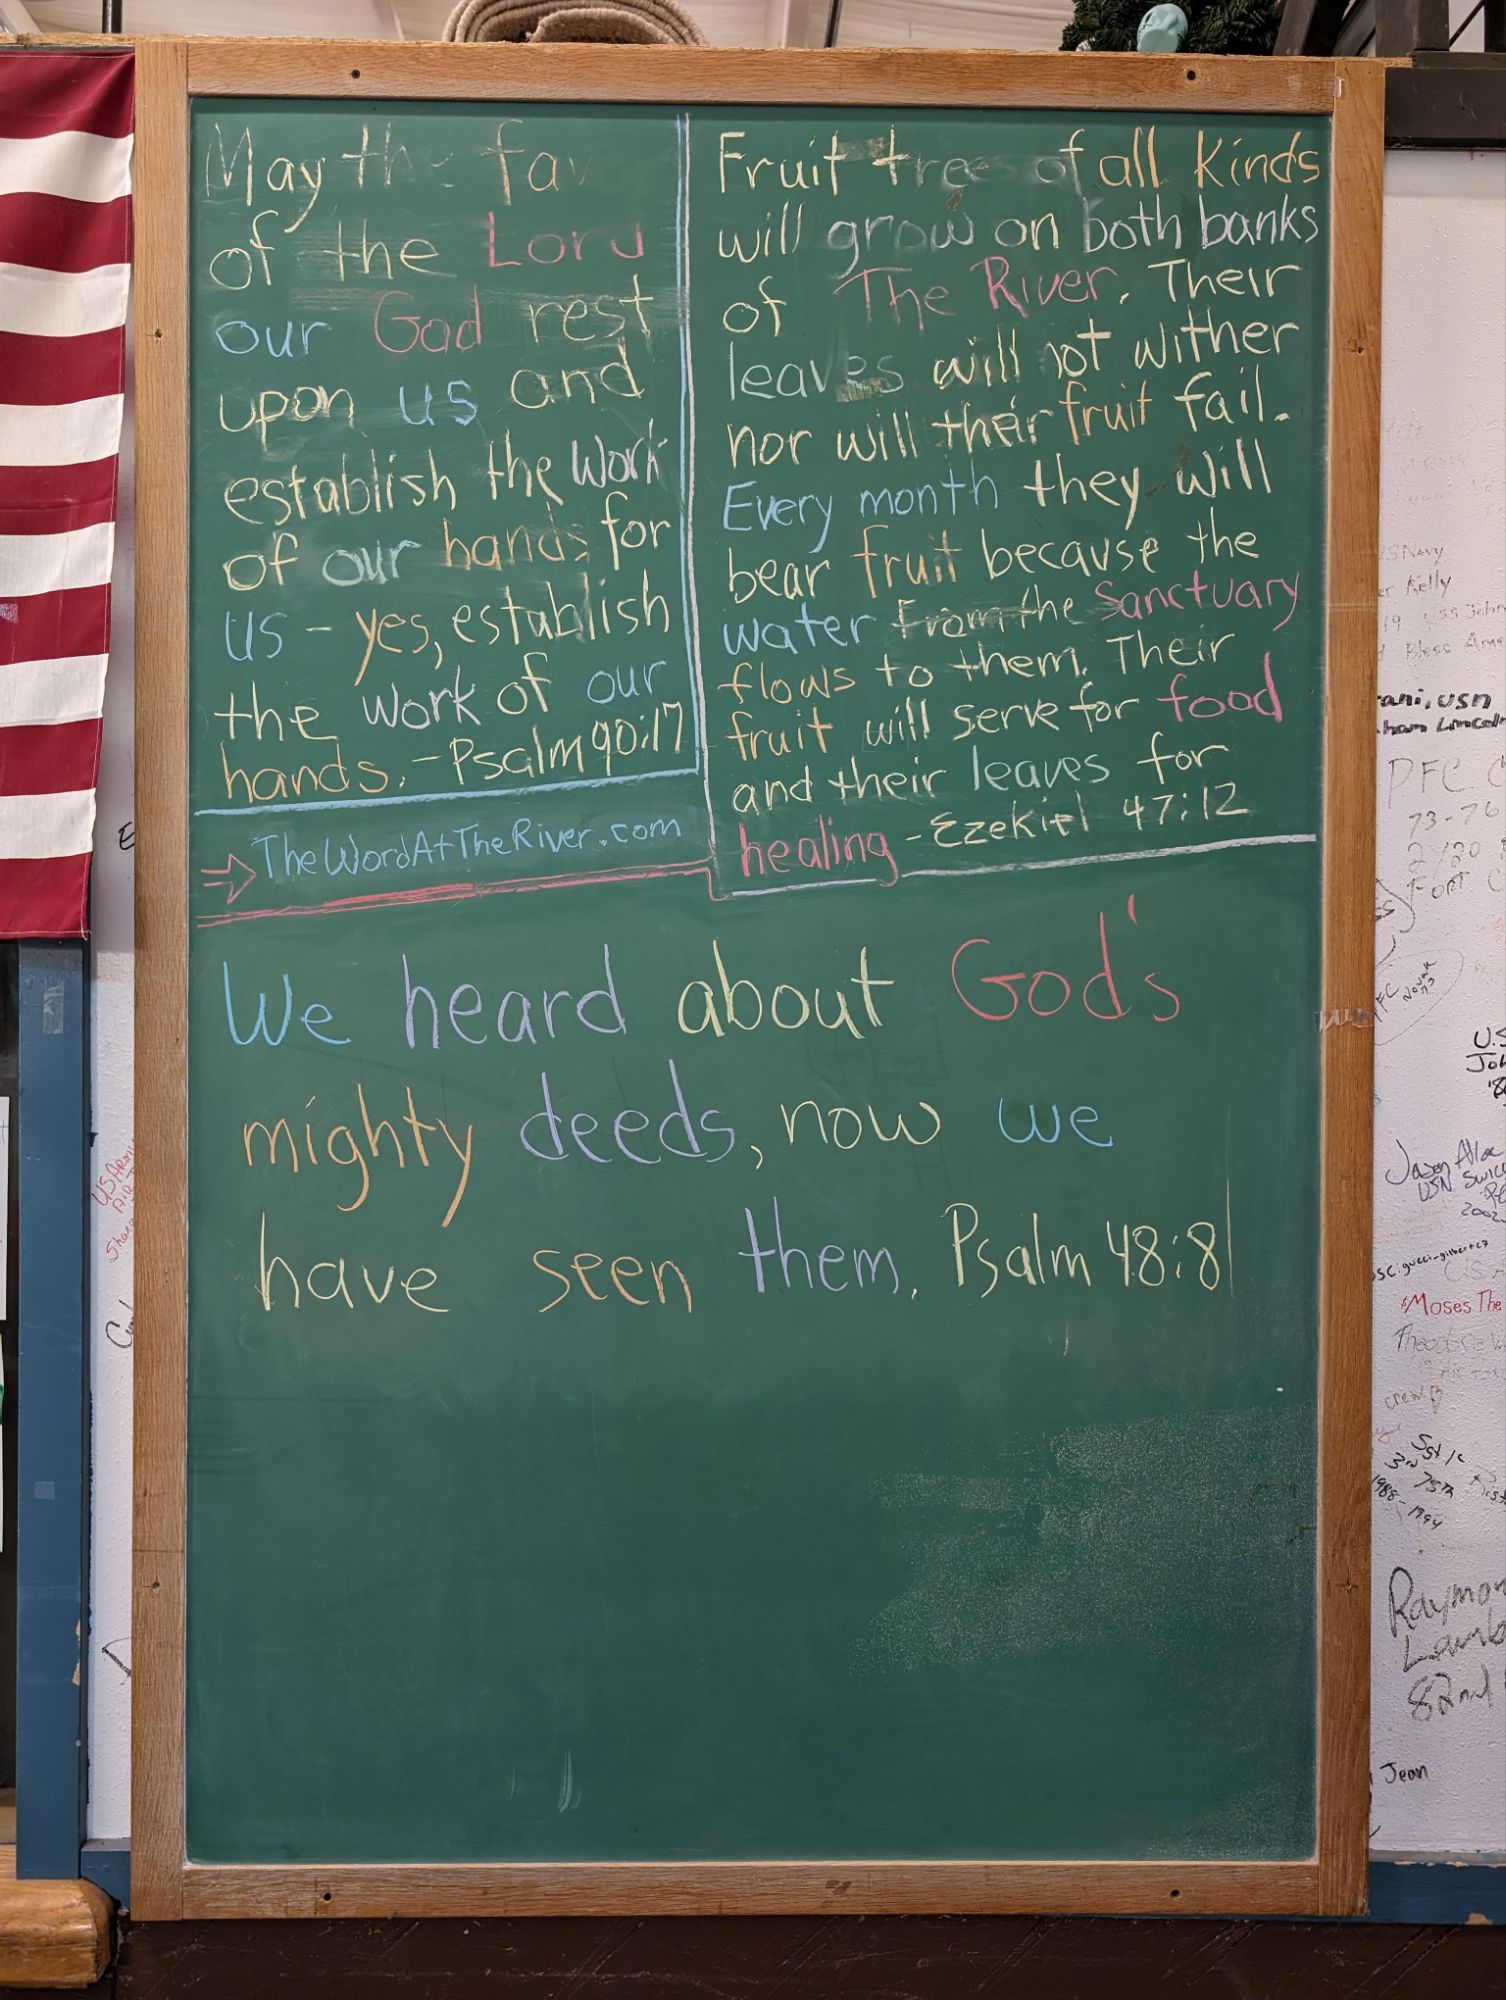 May the fav
of the Lord
our God rest
upon us and
establish the Work
of our hands for
us - yes, establish
the work of our
hands. - Psalm 90:17
TheWordAtTheRiver.com
Fruit trees of all kinds
will grow on both banks
of The River. Their
leaves will not wither
nor will their fruit fail.
Every month they will
bear fruit because the
water from the Sanctuary
flows to them. Their
fruit will serve for food
and their leaves for
healing - Ezekiel 47:12
We heard about God's
mighty deeds, now we
have seen them. Psalm 48:8
US Navy
Kelly
19 USS John
Bless Ame
rani, USN
ham Lincoln
PFC. C
73-76
2/20
Fort. C
PFC
Novak
U.S
Jason
USN
2002
Moses The
Theodore
crew
SSt
3rd 75th
1988-1994
Raymon
Lamb
82nd
Jean
US Army